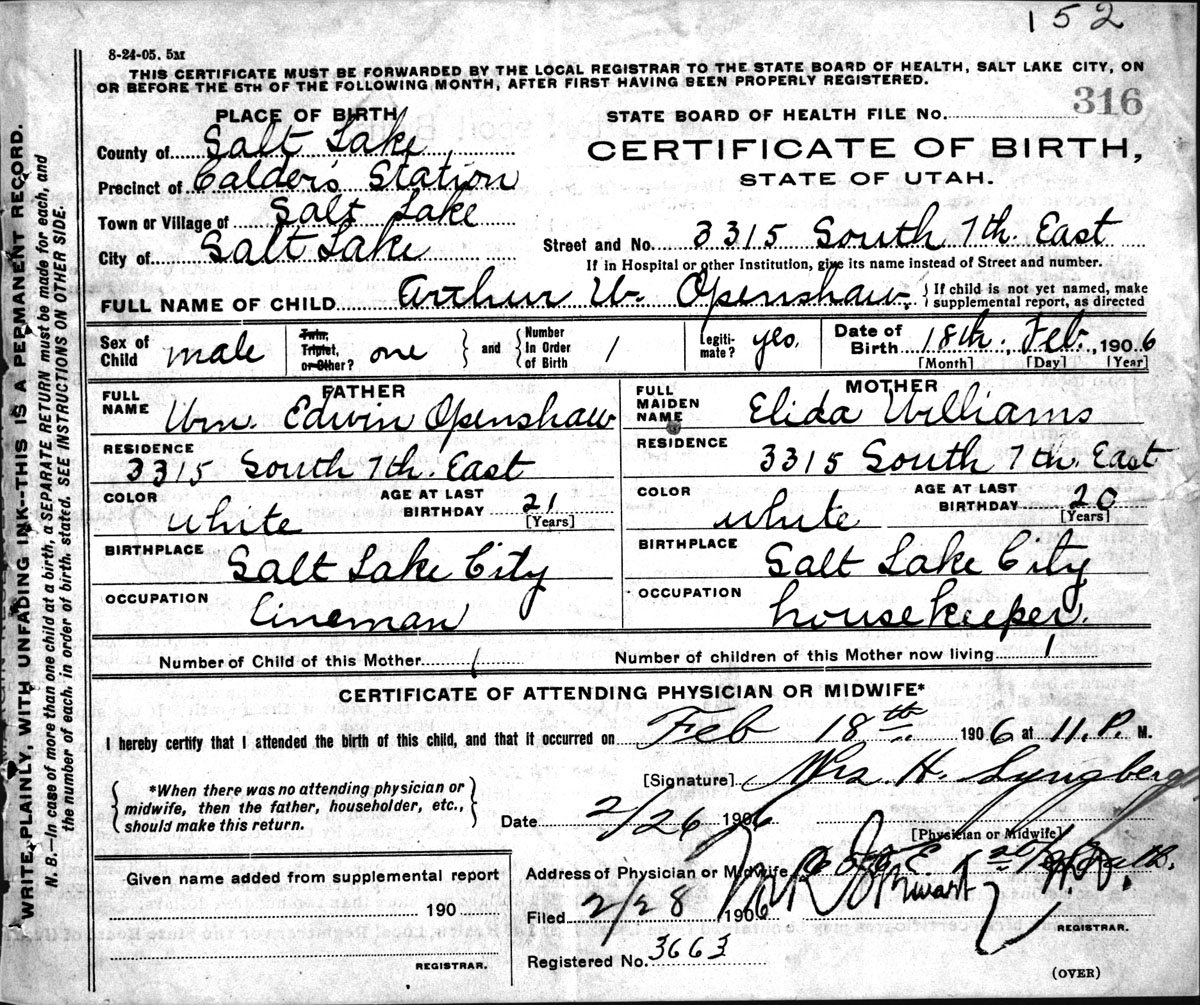 152
8-24-05. 5M
THIS CERTIFICATE MUST BE FORWARDED BY THE LOCAL REGISTRAR TO THE STATE BOARD OF HEALTH, SALT LAKE CITY, ON
OR BEFORE THE 5TH OF THE FOLLOWING MONTH, AFTER FIRST HAVING BEEN PROPERLY REGISTERED.
WRITE PLAINLY, WITH UNFADING INK--THIS IS A PERMANENT RECORD.
N. B.—In case of more than one child at a birth, a SEPARATE RETURN must be made for each, and
the number of each, in order of birth, stated. SEE INSTRUCTIONS ON OTHER SIDE.
PLACE OF BIRTH
County of Salt Lake
Precinct of Calder's Station
Town or Village of Salt Lake
City of Salt Lake
STATE BOARD OF HEALTH FILE No. 316
CERTIFICATE OF BIRTH,
STATE OF UTAH.
Street and No. 3315 South 7th. East
If in Hospital or other Institution, give its name instead of Street and number.
FULL NAME OF CHILD Arthur W. Openshaw. If child is not yet named, make
supplemental report, as directed
Sex of Child male Twin, Triplet, or Other? one and Number In Order of Birth 1 Legiti-mate? yes. Date of Birth 18th. Feb., 1906
[Month] [Day] [Year]
FATHER
FULL NAME Wm. Edwin Openshaw
RESIDENCE
3315 South 7th. East
COLOR white AGE AT LAST BIRTHDAY 21
[Years]
BIRTHPLACE Salt Lake City
OCCUPATION Lineman
MOTHER
FULL MAIDEN NAME Elida Williams
RESIDENCE
3315 South 7th. East
COLOR white AGE AT LAST BIRTHDAY 20
[Years]
BIRTHPLACE Salt Lake City
OCCUPATION housekeeper.
Number of Child of this Mother 1 Number of children of this Mother now living 1
CERTIFICATE OF ATTENDING PHYSICIAN OR MIDWIFE*
I hereby certify that I attended the birth of this child, and that it occurred on Feb 18th 1906 at 11. P. M.
*When there was no attending physician or
midwife, then the father, householder, etc.,
should make this return.
[Signature] Mrs H. Lyngberg
Date 2/26 1906
[Physician or Midwife]
Given name added from supplemental report
190
REGISTRAR.
Address of Physician or Midwife
Filed 2/28 1906
REGISTRAR.
Registered No. 3663
(OVER)